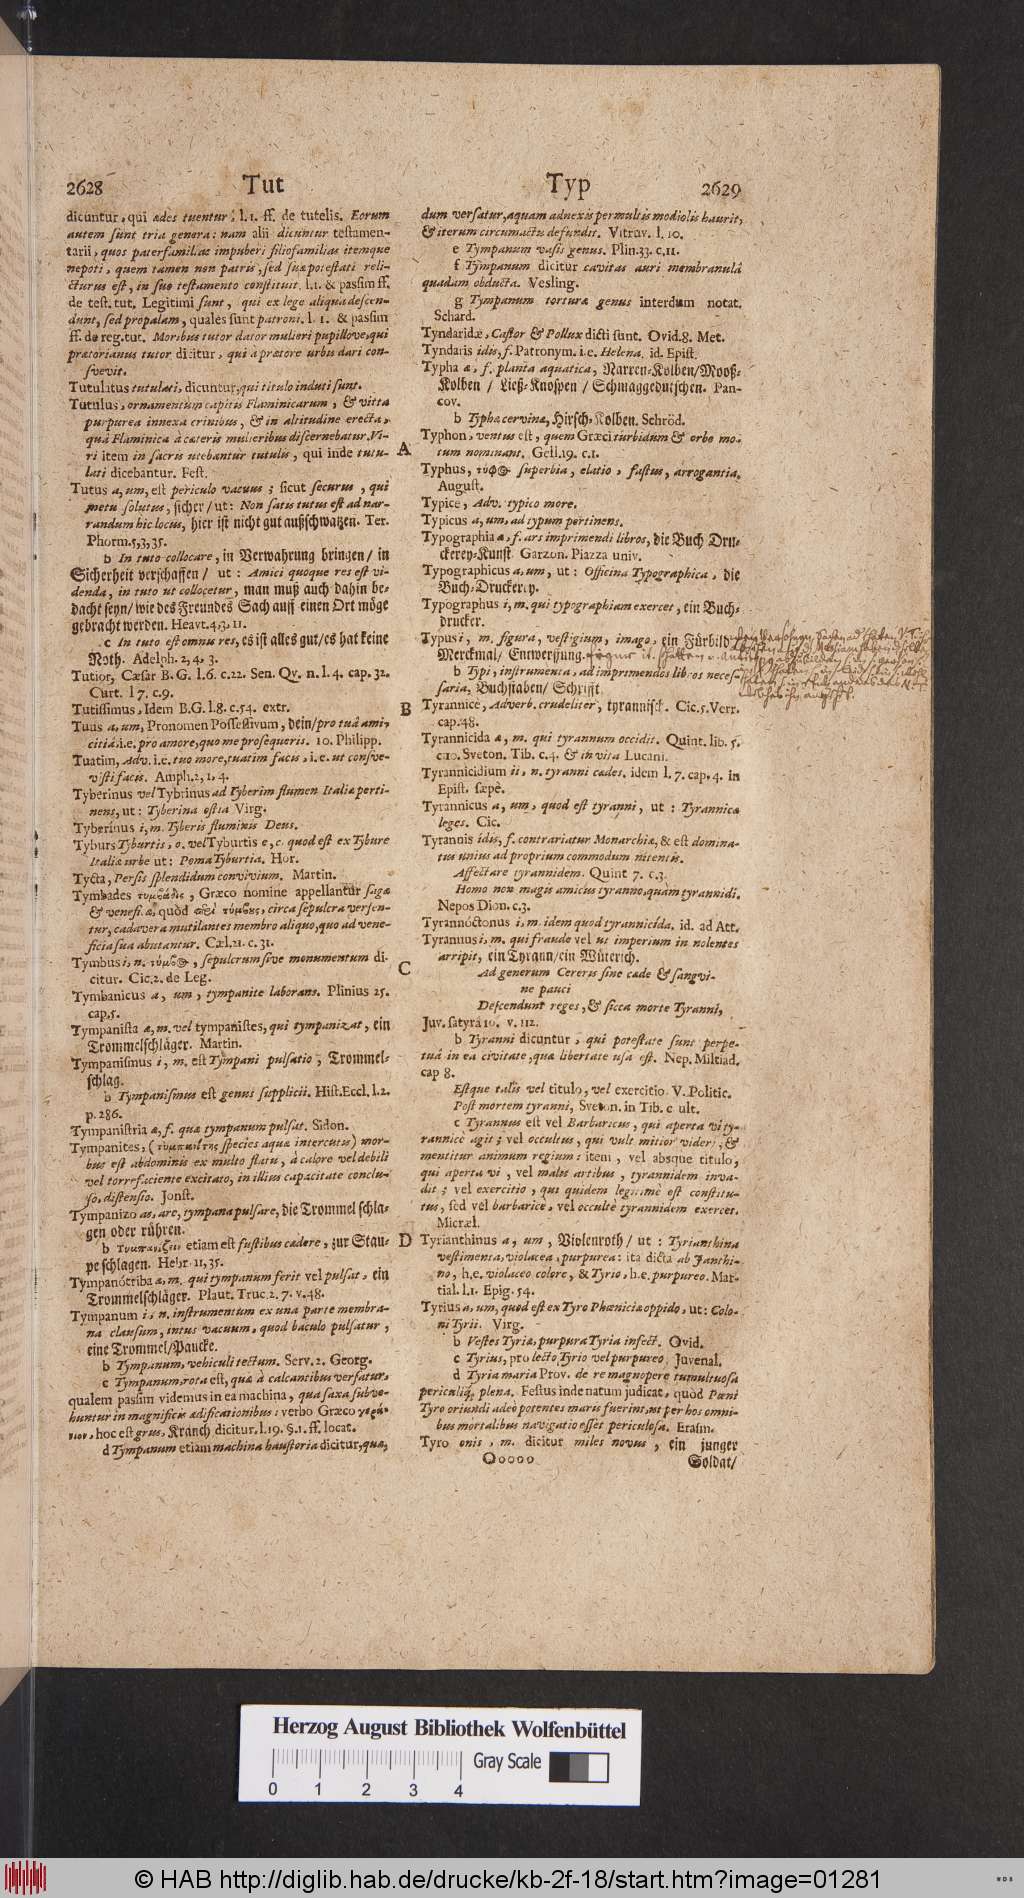 2628 Tut
dicuntur, qui ædes tuentur. l. 1. ff. de tutelis. Eorum
autem sunt tria genera: nam alii dicuntur testamen-
tarii, quos paterfamiliæ impuberi filiofamiliæ itemque
nepoti, quem tamen non patris, sed suæ potestati reli-
cturus est, in suo testamento constituit. l. 1. & passim ff.
de test. tut. Legitimi sunt, qui ex lege aliqua descen-
dunt, sed propalam, quales sunt patroni. l. 1. & passim
ff. de reg. tut. Moribus tutor dator mulieri pupillove, qui
prætorianus tutor dicitur, qui à prætore urbis dari con-
suevit.
Tutulatus tutulati, dicuntur, qui titulo induti sunt.
Tutulus, ornamentum capitis Flaminicarum, & vitta
purpurea innexa crinibus, & in altitudine erecta,
quâ Flaminica à cæteris mulieribus discernebatur. Vi-
ri item in sacris utebantur tutulis, qui inde tutu-
lati dicebantur. Fest.
Tutus a, um, est periculo vacuus; sicut securus, qui
metu solutus, sicher/ ut: Non satis tutus est ad nar-
randum hic locus, hier ist nicht gut außschwatzen. Ter.
Phorm. 5, 3, 35.
b In tuto collocare, in Verwahrung bringen/ in
Sicherheit verschaffen/ ut: Amici quoque res est vi-
denda, in tuto ut collocetur, man muß auch dahin be-
dacht seyn/ wie des Freundes Sach auff einen Ort möge
gebracht werden. Heavt. 4, 3, 11.
c In tuto est omnis res, es ist alles gut/ es hat keine
Noth. Adelph. 2, 4, 3.
Tutior, Cæsar B. G. l. 6. c. 22. Sen. Qv. n. l. 4. cap. 32.
Curt. l 7. c. 9.
Tutissimus, Idem B. G. l. 8. c. 54. extr.
Tuus a, um, Pronomen Possessivum, dein/ pro tuâ ami-
citiâ. i.e. pro amore, quo me prosequeris. 10. Philipp.
Tuatim, Adv. i.e. tuo more, tuatim facis, i.e. ut consve-
visti facis. Amph. 2, 1, 4.
Tyberinus vel Tybrinus ad Tyberim flumen Italiæ perti-
nens, ut: Tyberina ostia Virg.
Tyberinus i, m. Tyberis fluminis Deus.
Tyburs Tyburtis, o. vel Tyburtis e, c. quod est ex Tybure
Italiæ urbe ut: Poma Tyburtia. Hor.
Tycta, Persis splendidum convivium. Martin.
Tymbades τυμβάδες, Græco nomine appellantur sagæ
& veneficæ, quòd circa sepulcra versen-
tur, cadavera mutilantes membro aliquo, quo ad vene-
ficia sua abutantur. Cæl. 21. c. 31.
Tymbus i, n. τύμβος, sepulcrum sive monumentum di-
citur. Cic. 2. de Leg.
Tymbanicus a, um, tympanite laborans. Plinius 25.
cap. 5.
Tympanista æ, m. vel tympanistes, qui tympanizat, ein
Trommelschläger. Martin.
Tympanismus i, m. est Tympani pulsatio, Trommel-
schlag.
b Tympanismus est genus supplicii. Hist. Eccl. l. 2.
p. 286.
Tympanistria æ, f. quæ tympanum pulsat. Sidon.
Tympanites, (τυμπανίτης species aquæ intercutis) mor-
bus est abdominis ex multo flatu, à calore vel debili
vel torrefaciente excitato, in illius capacitate conclu-
so, distensio. Jonst.
Tympanizo as, are, tympana pulsare, die Trommel schla-
gen oder rühren.
b etiam est fustibus cædere, zur Stau-
pe schlagen. Hebr. 11, 35.
Tympanótriba æ, m. qui tympanum ferit vel pulsat, ein
Trommelschläger. Plaut. Truc. 2. 7. v. 48.
Tympanum i, n. instrumentum ex una parte membra-
na clausum, intus vacuum, quod baculo pulsatur,
eine Trommel/ Paucke.
b Tympanum, vehiculi tectum. Serv. 2. Georg.
c Tympanum, rota est, quæ à calcantibus versatur,
qualem passim videmus in ea machina, qua saxa subve-
huntur in magnificis ædificationibus: verbo Græco
hoc est grus, Kranch dicitur. l. 19. §. 1. ff. locat.
d Tympanum etiam machina haustoria dicitur, quæ,
A
B
C
D
Typ 2629
dum versatur, aquam adnexis permultis modiolis haurit,
& iterum circumactu defundit. Vitruv. l. 10.
e Tympanum vasis genus. Plin. 33. c. 11.
f Tympanum dicitur cavitas auri membranulâ
quadam obducta. Vesling.
g Tympanum torturæ genus interdum notat.
Schard.
Tyndaridæ, Castor & Pollux dicti sunt. Ovid. 8. Met.
Tyndaris idis, f. Patronym. i.e. Helena. id. Epist.
Typha æ, f. planta aquatica, Narren-Kolben/ Mooß-
Kolben / Ließ-Knospen / Schmaggedutschen. Pan-
cov.
b Typha cervina, Hirsch-Kolben. Schröd.
Typhon, ventus est, quem Græci turbidum & orbe mo-
tum nominant. Gell. 19. c. 1.
Typhus, τύφος superbia, elatio, fastus, arrogantia.
August.
Typice, Adv. typico more.
Typicus a, um, ad typum pertinens.
Typographia æ, f. ars imprimendi libros, die Buch Dru-
ckerey-Kunst. Garzon. Piazza univ.
Typographicus a, um, ut: Officina Typographica, die
Buch-Druckerey.
Typographus i, m. qui typographiam exercet, ein Buch-
drucker.
Typus i, m. figura, vestigium, imago, ein Fürbild
Merckmal/ Entwerffung.
b Typi, instrumenta, ad imprimendos libros neces-
saria, Buchstaben/ Schrifft
Tyrannicè, Adverb. crudeliter, tyrannisch. Cic. 5. Verr.
cap. 48.
Tyrannicida æ, m. qui tyrannum occidit. Quint. lib. 5.
c 10. Sveton. Tib. c. 4. & in vita Lucani.
Tyrannicidium ii, n. tyranni cædes. idem l. 7. cap. 4. in
Epist. sæpè.
Tyrannicus a, um, quod est tyranni, ut: Tyrannicæ
leges. Cic.
Tyrannis idis, f. contrariatur Monarchiæ, & est domina-
tus unius ad proprium commodum nitentis.
Affectare tyrannidem. Quint 7. c. 3.
Homo non magis amicus tyranno, quàm tyrannidi.
Nepos Dion. c. 3.
Tyrannóctonus i, m. idem quod tyrannicida. id. ad Att.
Tyrannus i, m. qui fraude vel ut imperium in nolentes
arripit, ein Tyrann/ ein Wüterich.
Ad generum Cereris sine cæde & sangvi-
ne pauci
Descendunt reges, & sicca morte Tyranni,
Juv. satyrâ 10. v. 112.
b Tyranni dicuntur, qui potestate sunt perpe-
tuâ in ea civitate, quæ libertate usa est. Nep. Miltiad.
cap 8.
Estque talis vel titulo, vel exercitio V. Politic.
Post mortem tyranni, Sveton. in Tib. c ult.
c Tyrannus est vel Barbaricus, qui aperta vi ty-
rannicè agit; vel occultus, qui vult mitior videri, &
mentitur animum regium: item, vel absque titulo,
qui aperta vi, vel malis artibus, tyrannidem inva-
dit; vel exercitio, qui quidem legitimè est constitu-
tus, sed vel barbaricè, vel occultè tyrannidem exercet.
Micræl.
Tyrianthinus a, um, Violenroth/ ut: Tyrianthina
vestimenta, violacea, purpurea: ita dicta ab Janthi-
no, h.e. violaceo colore, & Tyrio, h.e. purpureo. Mar-
tial. l. 1. Epig. 54.
Tyrius a, um, quod est ex Tyro Phœniciæ oppido, ut: Colo-
ni Tyrii. Virg.
b Vestes Tyriæ, purpura Tyria infect. Ovid.
c Tyrius, pro lecto Tyrio vel purpureo. Juvenal.
d Tyria maria Prov. de re magnopere tumultuosa
periculiq; plena. Festus inde natum judicat, quòd Pœni
Tyro oriundi adeò potentes maris fuerint, ut per hos omni-
bus mortalibus navigatio esset periculosa. Erasm.
Tyro onis, m. dicitur miles novus, ein junger
Ooooo Soldat/
Herzog August Bibliothek Wolfenbüttel
Gray Scale
0 1 2 3 4
© HAB http://diglib.hab.de/drucke/kb-2f-18/start.htm?image=01281